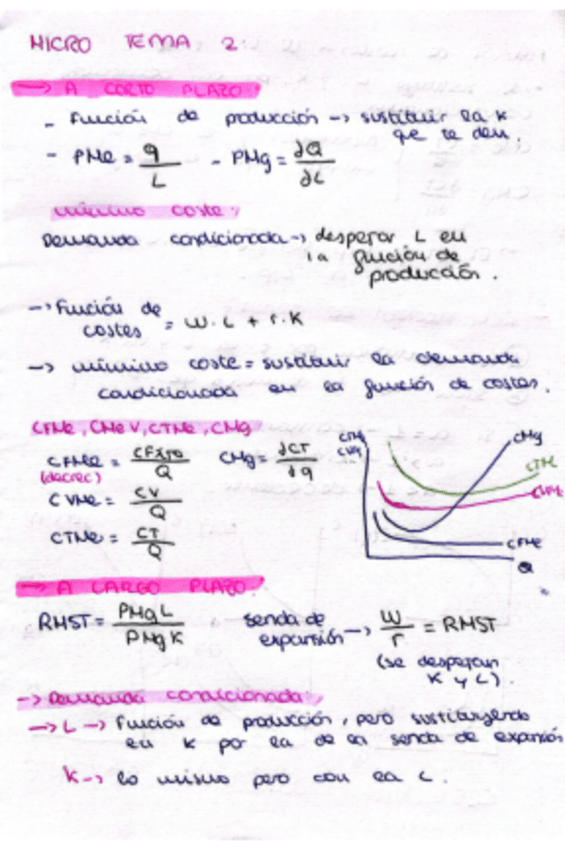 MICRO TEMA 2
→ A CORTO PLAZO:
- Función de producción → sustituir la K
qe te den.
- PMe = q/L - PMg = ∂Q/∂L
mínimo coste:
Demanda condicionada → despejar L en
la función de
producción.
→ Función de
costes = w·L + r·K
→ mínimo coste = sustituir la demanda
condicionada en la función de costes.
CFMe, CMeV, CTMe, CMg
CFMe = CFXTO/Q CMg = ∂CT/∂q
(decrec)
CVMe = CV/Q
CTMe = CT/Q
CMg
CTMe
CVMe
CFMe
Q
→ A LARGO PLAZO:
RMST = PMgL/PMgK senda de
expansión → w/r = RMST
(se despejan
K y L).
→ Demanda condicionada:
→ L → Función de producción, pero sustituyendo
en K por la de la senda de expansión
K → lo mismo pero con la L.